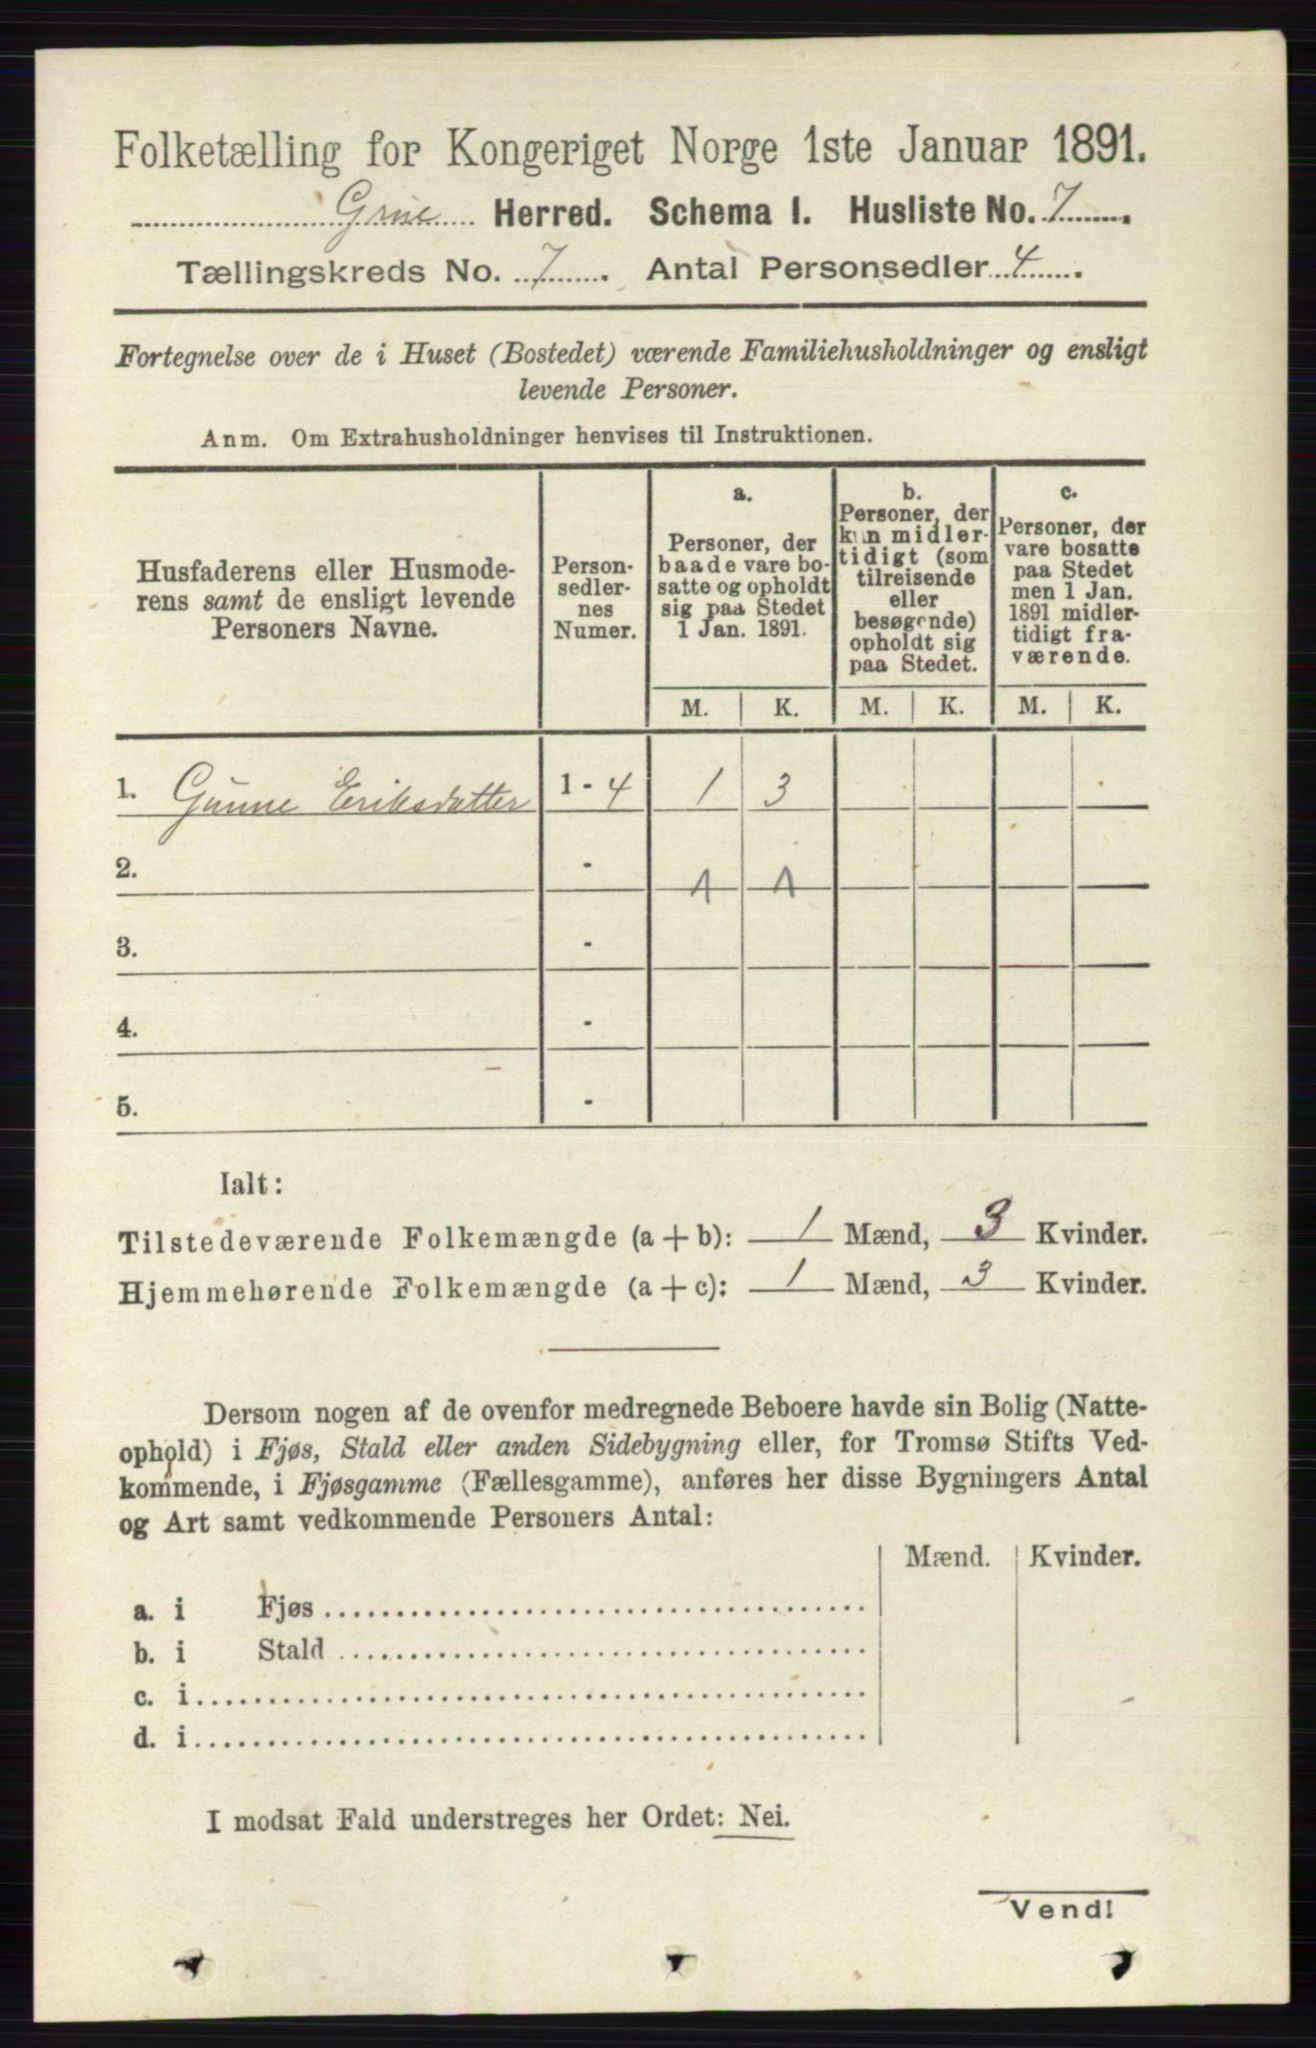 Folketælling for Kongeriget Norge 1ste Januar 1891.
Grue Herred. Schema 1. Husliste No. 7.
Tællingskreds No. 7. Antal Personsedler 4.
Fortegnelse over de i Huset (Bostedet) værende Familiehusholdninger og ensligt
levende Personer.
Anm. Om Extrahusholdninger henvises til Instruktionen.
Husfaderens eller Husmode-
rens samt de ensligt levende
Personers Navne.
Person-
sedler-
nes
Numer.
a.
Personer, der
baade vare bo-
satte og opholdt
sig paa Stedet
1 Jan. 1891.
b.
Personer, der
kun midler-
tidigt (som
tilreisende
eller
besøgende)
opholdt sig
paa Stedet.
c.
Personer, der
vare bosatte
paa Stedet
men 1 Jan.
1891 midler-
tidigt fra-
værende.
M. K. M. K. M. K.
1. Gunne Eriksdatter 1 - 4 1 3
2. - 1 1
3. -
4. -
5. -
Ialt:
Tilstedeværende Folkemængde (a + b): 1 Mænd, 3 Kvinder.
Hjemmehørende Folkemængde (a + c): 1 Mænd, 3 Kvinder.
Dersom nogen af de ovenfor medregnede Beboere havde sin Bolig (Natte-
ophold) i Fjøs, Stald eller anden Sidebygning eller, for Tromsø Stifts Ved-
kommende, i Fjøsgamme (Fællesgamme), anføres her disse Bygningers Antal
og Art samt vedkommende Personers Antal:
Mænd. Kvinder.
a. i Fjøs
b. i Stald
c. i
d. i
I modsat Fald understreges her Ordet: Nei.
Vend!